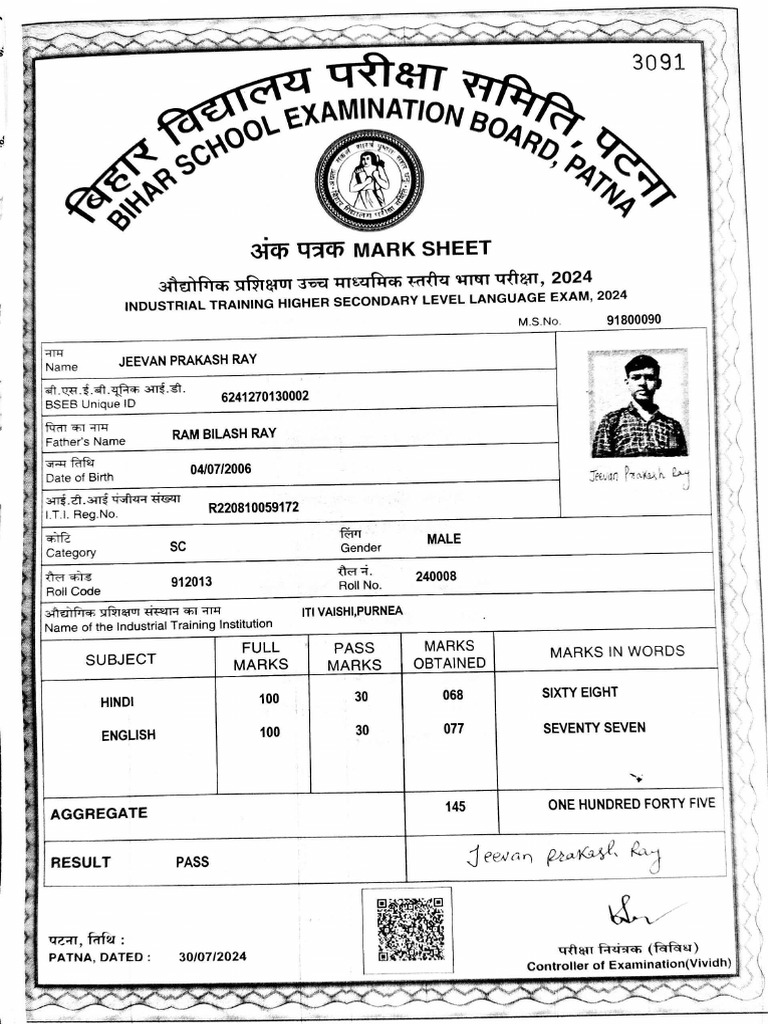 3091
बिहार विद्यालय परीक्षा समिति, पटना
BIHAR SCHOOL EXAMINATION BOARD, PATNA
अंक पत्रक MARK SHEET
औद्योगिक प्रशिक्षण उच्च माध्यमिक स्तरीय भाषा परीक्षा, 2024
INDUSTRIAL TRAINING HIGHER SECONDARY LEVEL LANGUAGE EXAM, 2024
M.S.No. 91800090
नाम
Name JEEVAN PRAKASH RAY
बी.एस.ई.बी.यूनिक आई.डी.
BSEB Unique ID 6241270130002
पिता का नाम
Father's Name RAM BILASH RAY
Jeevan Prakash Ray
जन्म तिथि
Date of Birth 04/07/2006
आई.टी.आई पंजीयन संख्या
I.T.I. Reg.No. R220810059172
कोटि लिंग
Category SC Gender MALE
रौल कोड रौल नं.
Roll Code 912013 Roll No. 240008
औद्योगिक प्रशिक्षण संस्थान का नाम
Name of the Industrial Training Institution ITI VAISHI,PURNEA
SUBJECT FULL MARKS PASS MARKS MARKS OBTAINED MARKS IN WORDS
HINDI 100 30 068 SIXTY EIGHT
ENGLISH 100 30 077 SEVENTY SEVEN
AGGREGATE 145 ONE HUNDRED FORTY FIVE
RESULT PASS Jeevan Prakash Ray
पटना, तिथि :
PATNA, DATED : 30/07/2024
परीक्षा नियंत्रक (विविध)
Controller of Examination(Vividh)